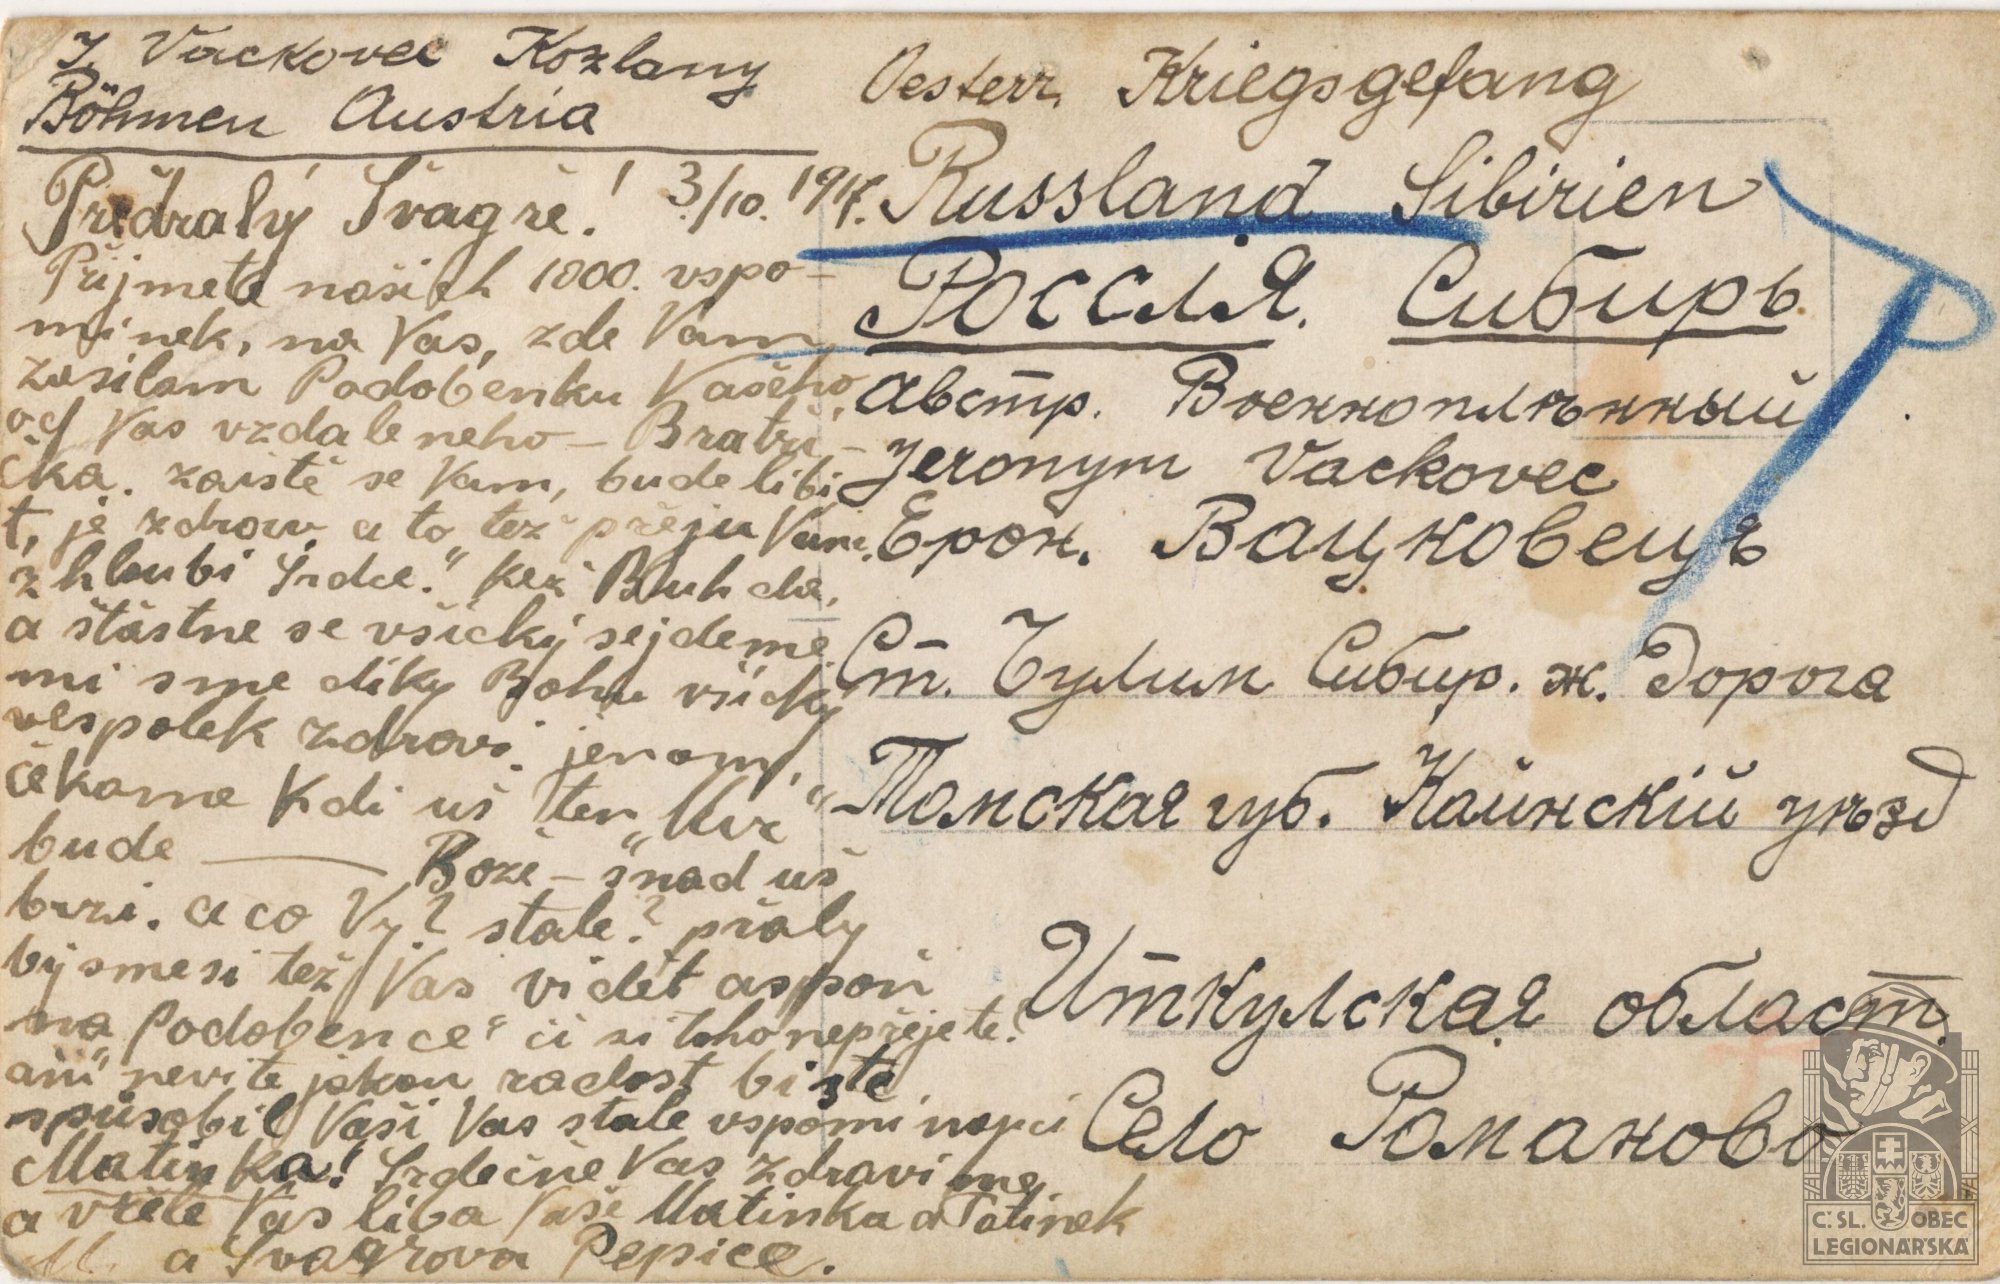 J. Vackovec Kozlany
Böhmen Austria
Předralý Švagře! 3/10. 1917.
Přijmete našich 1000. vspo-
minek, na Vas, zde Vam
zasilam Podobenku Vašeho,
od Vas vzdaleneho - Bratři-
čka. zaistě se Vam, bude libi
t, je zdrav, a to tež přeju Vam.
z hloubi Srdce." kež Buh da,
a štástne se všicky sejdeme
mi sme diky Bohu všicky
vespolek zdravi, jenom,
čekame kdi uš ten „Mir“
bude — Bože - snad uš
brzi. a co Vy? stale? přaly
by sme si tež Vas vidět aspoň
na Podobence" či si toho nepřejete?
ani" nevite jakou radost biste
spusobil Vaši Vas stale vspominajici
Matinka! Srdečně Vas zdravime
a vřele Vas liba Vaše Matinka a Tatinek
a Švagrova Pepice.
Oesterr. Kriegsgefang
Russland Sibirien
Россія. Сибирь.
Австр. Военноплѣнный
Jeronym Vackovec
Ерон. Вацковецъ
Ст. Чулим Сибир. ж. Дорога
Томская губ. Каинскій уѣзд
Иткулская област.
Село Романово
Č. SL. OBEC
LEGIONÁŘSKÁ